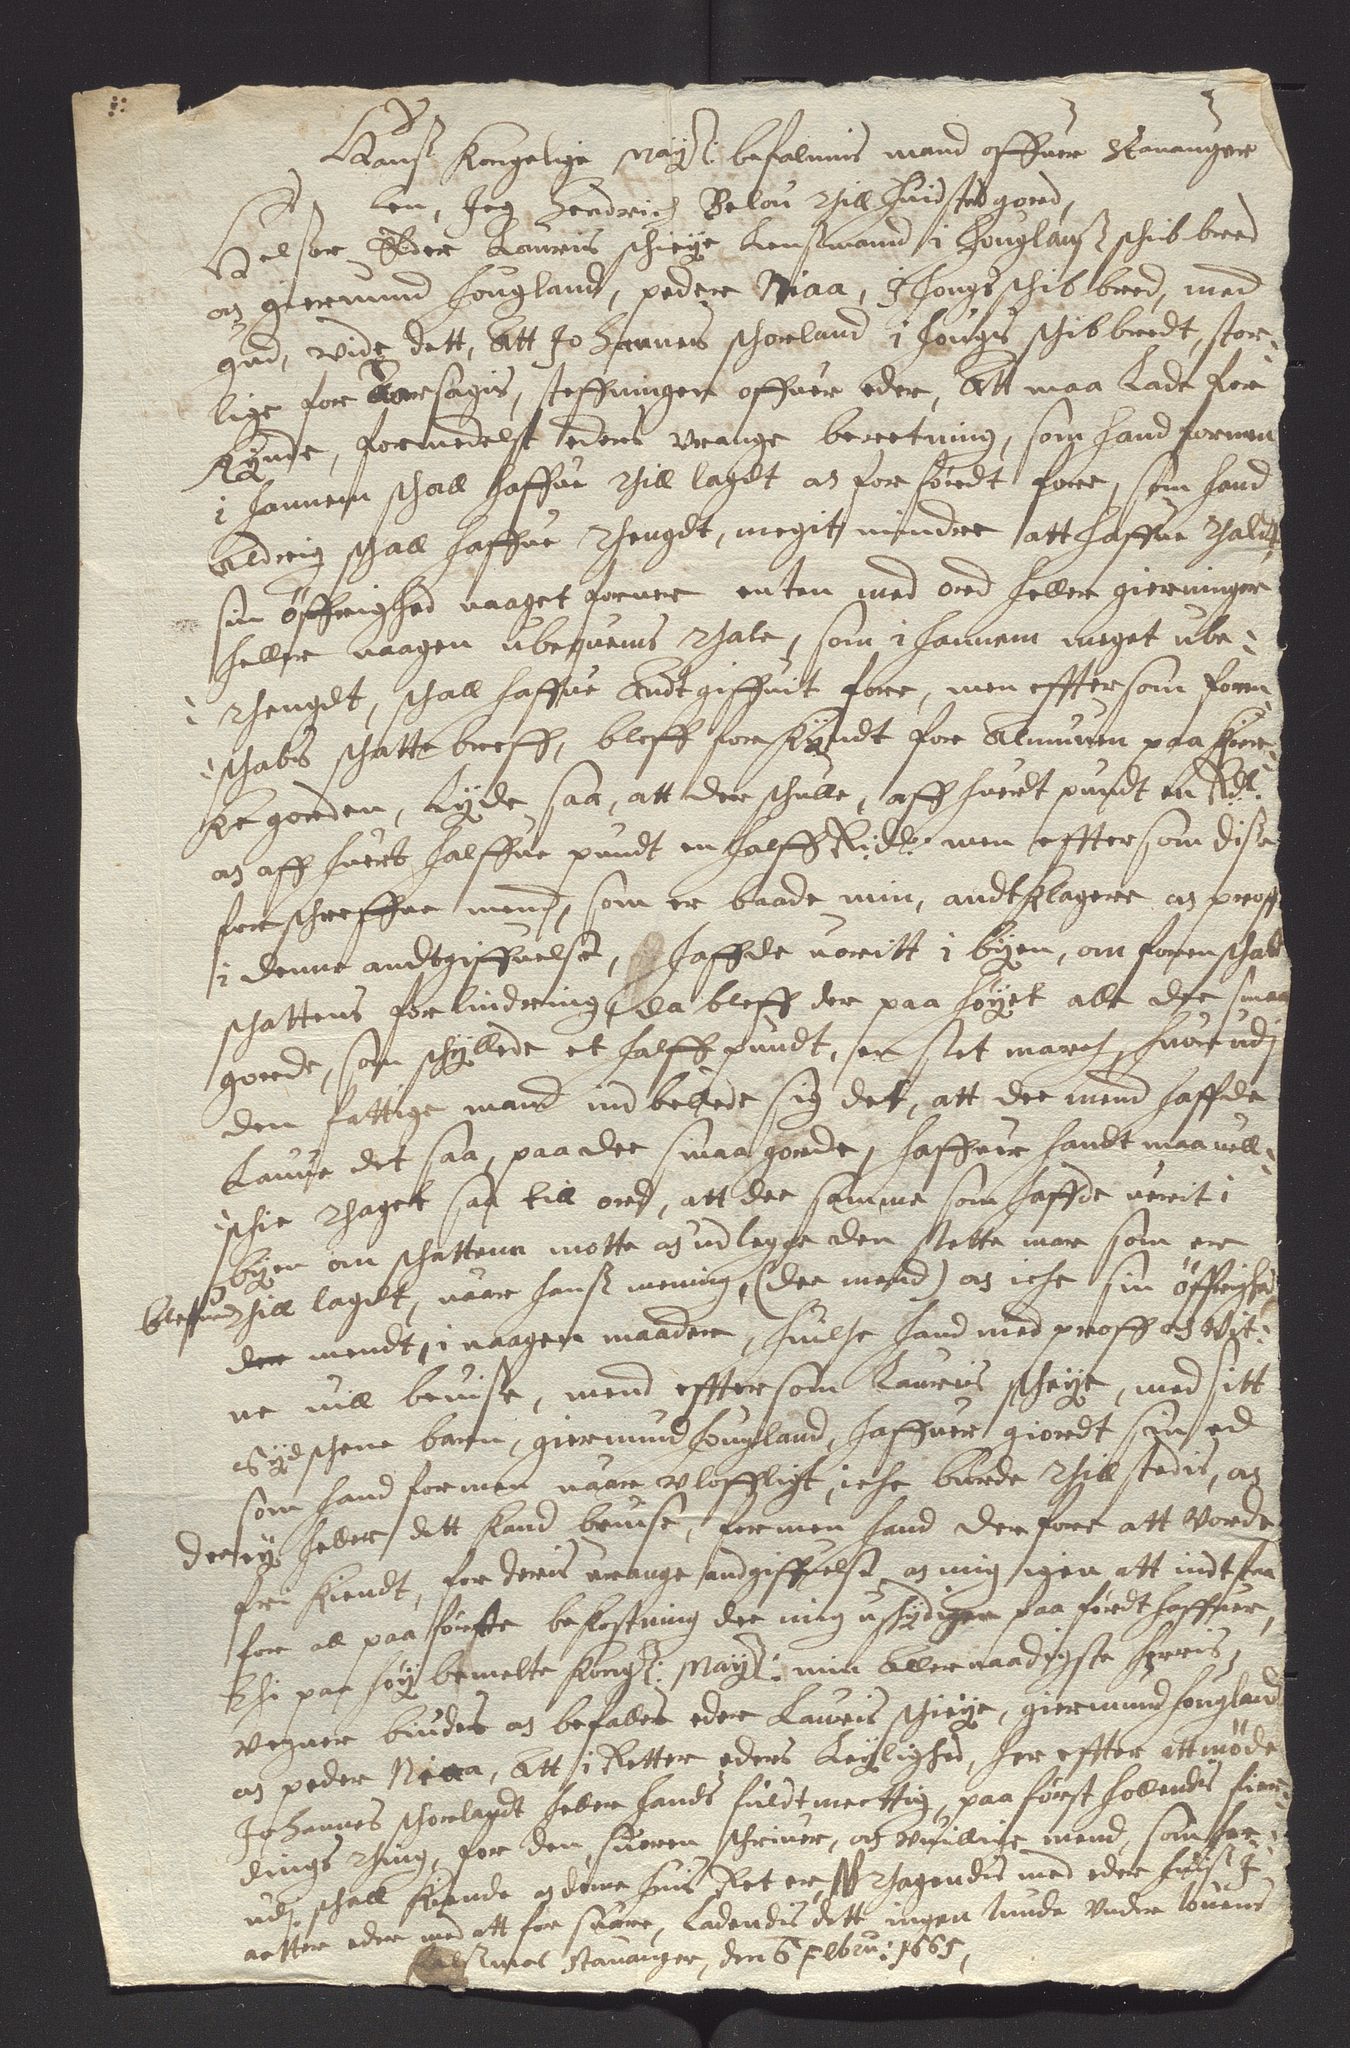 Hans Kongelige Mayst: befalnins mand offuer Stauanger
Len, Jeg Hendrich Belou till Huidsted gord,
Helser Eder Lauris schieye Lensmand i Houglans schibbred
og giermund Hougland, peder Niaa, i Hougs schibbred, med
gud, vide dett, Att Johannes schorland i Hougs schibbredt, stor-
lige for Aarsagis, steffninger offuer eder, Att maa Lade for
kynde, formedelst eders vrange berettning, som hand formen
i hannem schall haffue till lagdt og for førdt fore, som hand
aldreig schall haffue thengdt, megit mindre att haffue thaldt
sin öffrighed naaget fornær enten med ord heller gierninger
heller naagen ubequems thale, som i hannem meget ube-
thengdt, schall haffue Andtgiffuit fore, men efftersom foren
schabs schatte breff, bleff forkyndt for Almuuen paa kier-
ke gorden, Lyde saa, att der schulle, aff huerdt pundt en Rdl:
og aff huert halffue pundt en halff Ridl: men efftersom disse
forschreffne mend, som er baade min, andtklagere og proff
i denne andtgiffuelse, haffde verritt i byen, om forenschab
schattens forlindring, da bleff der paa høyet alle dee smaa
gorde, som schyllede et halff pundt, en slet march, huor udj
den fattige mand ind bellede sig det, att dee mend haffde
Lauue det saa, paa dee smaa gorde, haffuer handt maa uell-
schie thaget saa till ord, att dee samme som haffde verit i
byen om schatten motte og udlegge den slette mar som er
bleffuen till lagdt, uaar hans mening, (dee mend) og iche sin öffrighed
der mendt, i naagen maader, huilche hand med proff og vit-
ne uill beuise, mend efftersom Lauris scheye, med sitt
sydschene baren, giermund Hougland, haffuer giordt sin ed
som hand formen uaare uloffligt, iche burde till stedis, og
dee ey heller dett kand beuise, formen hand derfore att vorde
fri kiendt, for deris vrange andgiffuelse og mig igen att indtstaa
for all paa førte bekostning dee mig uschyldiger paa førdt haffuer,
Thi paa høybemelte Kongl: Mayst: min Aller naadigste herris,
vegner biudes og befalles eder Lauris schieye, giermund Hougland
og peder Niaa, Att i Retter eders Leylighed, her effter att møde
Johannes schorlandt heller hands fuldtmecttig, paa først hollendis fier-
dings thing, for den suoren schriuer, og uuillige mend, som her
udj schall kiende og døme huis Ret er, thagendis med eder huis I
achter eder med att for suare, Ladendis dett ingen lunde under louens
falsmaal Stauanger, den 6 Febru: 1665,